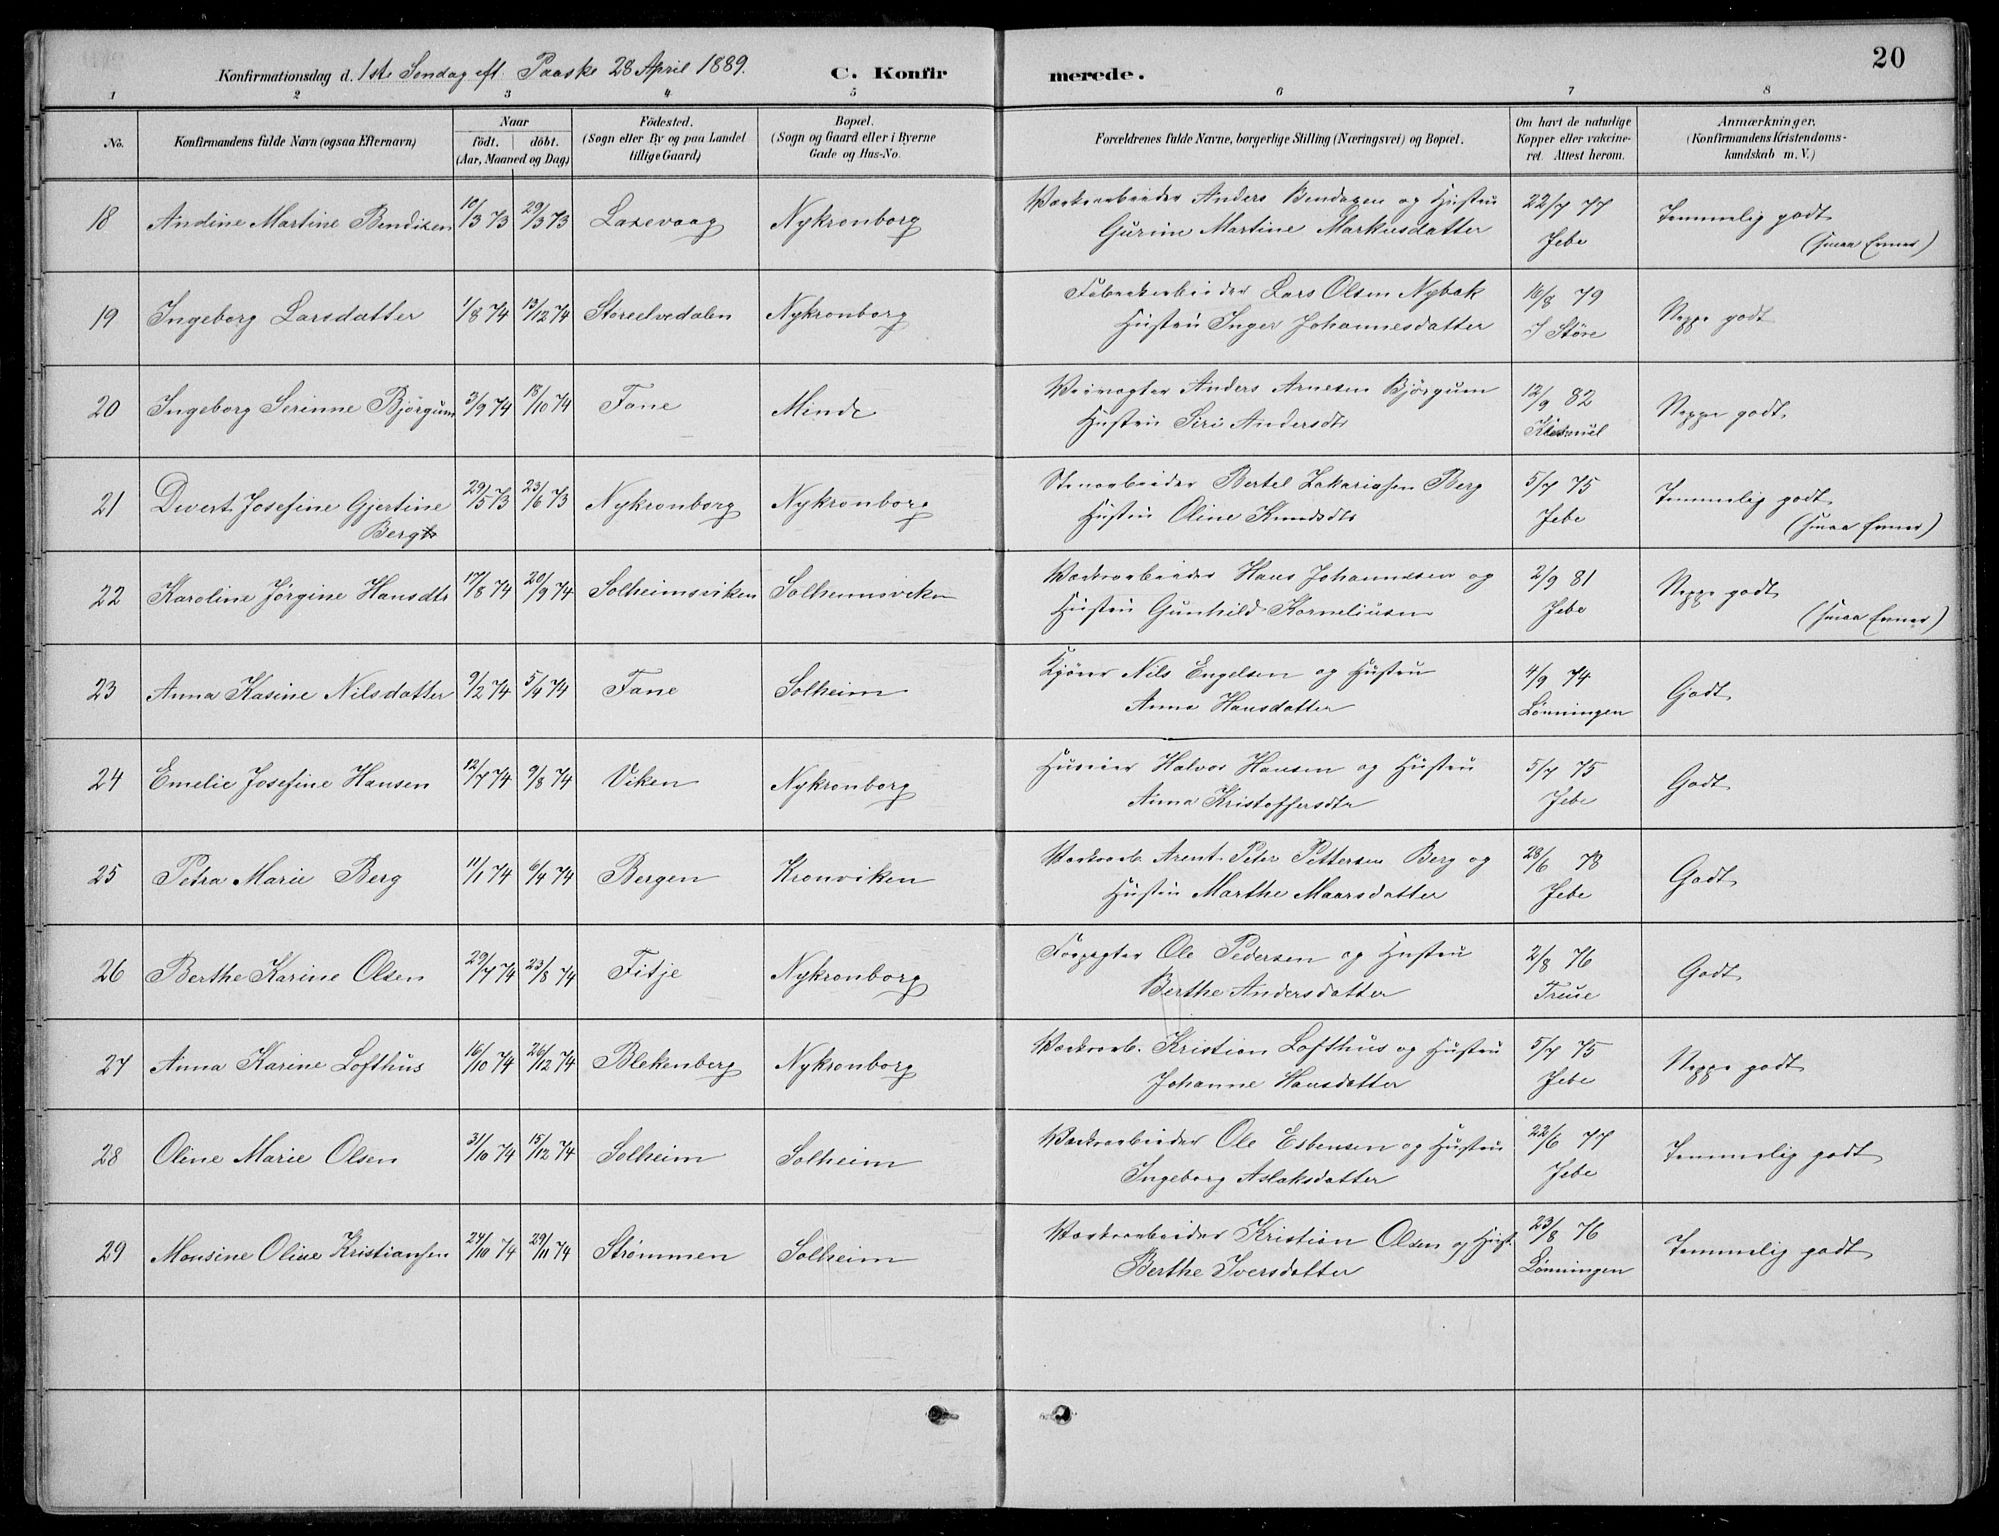 20
Konfirmationsdag d. 1ste Søndag eft. Paaske 28 April 1889. C. Konfirmerede.
1 2 3 4 5 6 7 8
No. Konfirmandens fulde Navn (ogsaa Efternavn) Naar födt. döbt. (Aar, Maaned og Dag) Födested. (Sogn eller By og paa Landet tillige Gaard) Bopæl. (Sogn og Gaard eller i Byerne Gade og Hus-No. Forældrenes fulde Navne, borgerlige Stilling (Næringsvei) og Bopæl. Om havt de naturlige Kopper eller vakcineret. Attest herom. Anmærkninger. (Konfirmandens Kristendomskundskab m. V.)
18 Andine Martine Bendixen 10/3 73 29/3 73 Laxevaag Nykronborg Værksarbeider Anders Bendixen og Hustru 22/7 77 Temmelig godt
Gurine Martine Markusdatter Jebe (smaa Evner)
19 Ingeborg Larsdatter 1/8 74 13/12 74 Storeelvedalen Nykronborg Fabrikarbeider Lars Olsen Nybak 16/8 79 Neppe godt
Hustru Inger Johannesdatter Støre
20 Ingeborg Serinne Bjørgum 3/9 74 18/10 74 Fane Minde Veivogter Anders Arnesen Bjørgum 12/9 82 Neppe godt
Hustru Siri Andersdtr
21 Divert Josefine Gjertine 29/5 73 23/6 73 Nykronborg Nykronborg Stenarbeider Bertel Zakariassen Berg 5/7 75 Temmelig godt
Berg Hustru Oline Knudsdtr Jebe (smaa Evner)
22 Karoline Jørgine Hansdtr 17/8 74 20/9 74 Solheimsviken Solheimsviken Værksarbeider Hans Johannesen og 2/9 81 Neppe godt
Hustru Gunhild Korneliusen Jebe (smaa Evner)
23 Anna Kasine Nilsdatter 9/2 74 5/4 74 Fane Solheim Kjører Nils Engelsen og Hustru 4/9 74 Godt
Anna Hansdatter Lönningen
24 Emelie Josefine Hansen 12/7 74 9/8 74 Viken Nykronborg Huseier Halvor Hansen og Hustru 5/7 75 Godt
Anna Kristoffersdtr Jebe
25 Petra Marie Berg 11/1 74 6/4 74 Bergen Kronviken Værksarb. Arent Peter Pettersen Berg og 28/6 78 Godt
Hustru Marthe Maarsdatter Jebe
26 Berthe Karine Olsen 29/7 74 23/8 74 Fitje Nykronborg Forpagter Ole Pedersen og Hustru 2/8 76 Godt
Berthe Andersdatter
27 Anna Karine Lofthus 16/10 74 26/12 74 Blekenberg Nykronborg Værksarb. Kristian Lofthus og Hustru 5/7 75 Neppe godt
Johanne Hansdatter Jebe
28 Oline Marie Olsen 31/10 74 15/12 74 Solheim Solheim Værksarbeider Ole Esbensen og Hustru 22/6 77 Temmelig godt
Ingeborg Aslaksdatter Jebe
29 Monsine Oline Kristiansen 24/10 74 29/11 74 Strømmen Solheim Værksarbeider Kristian Olsen og Hust. 23/8 76 Temmelig godt
Berthe Iversdatter Lönningen